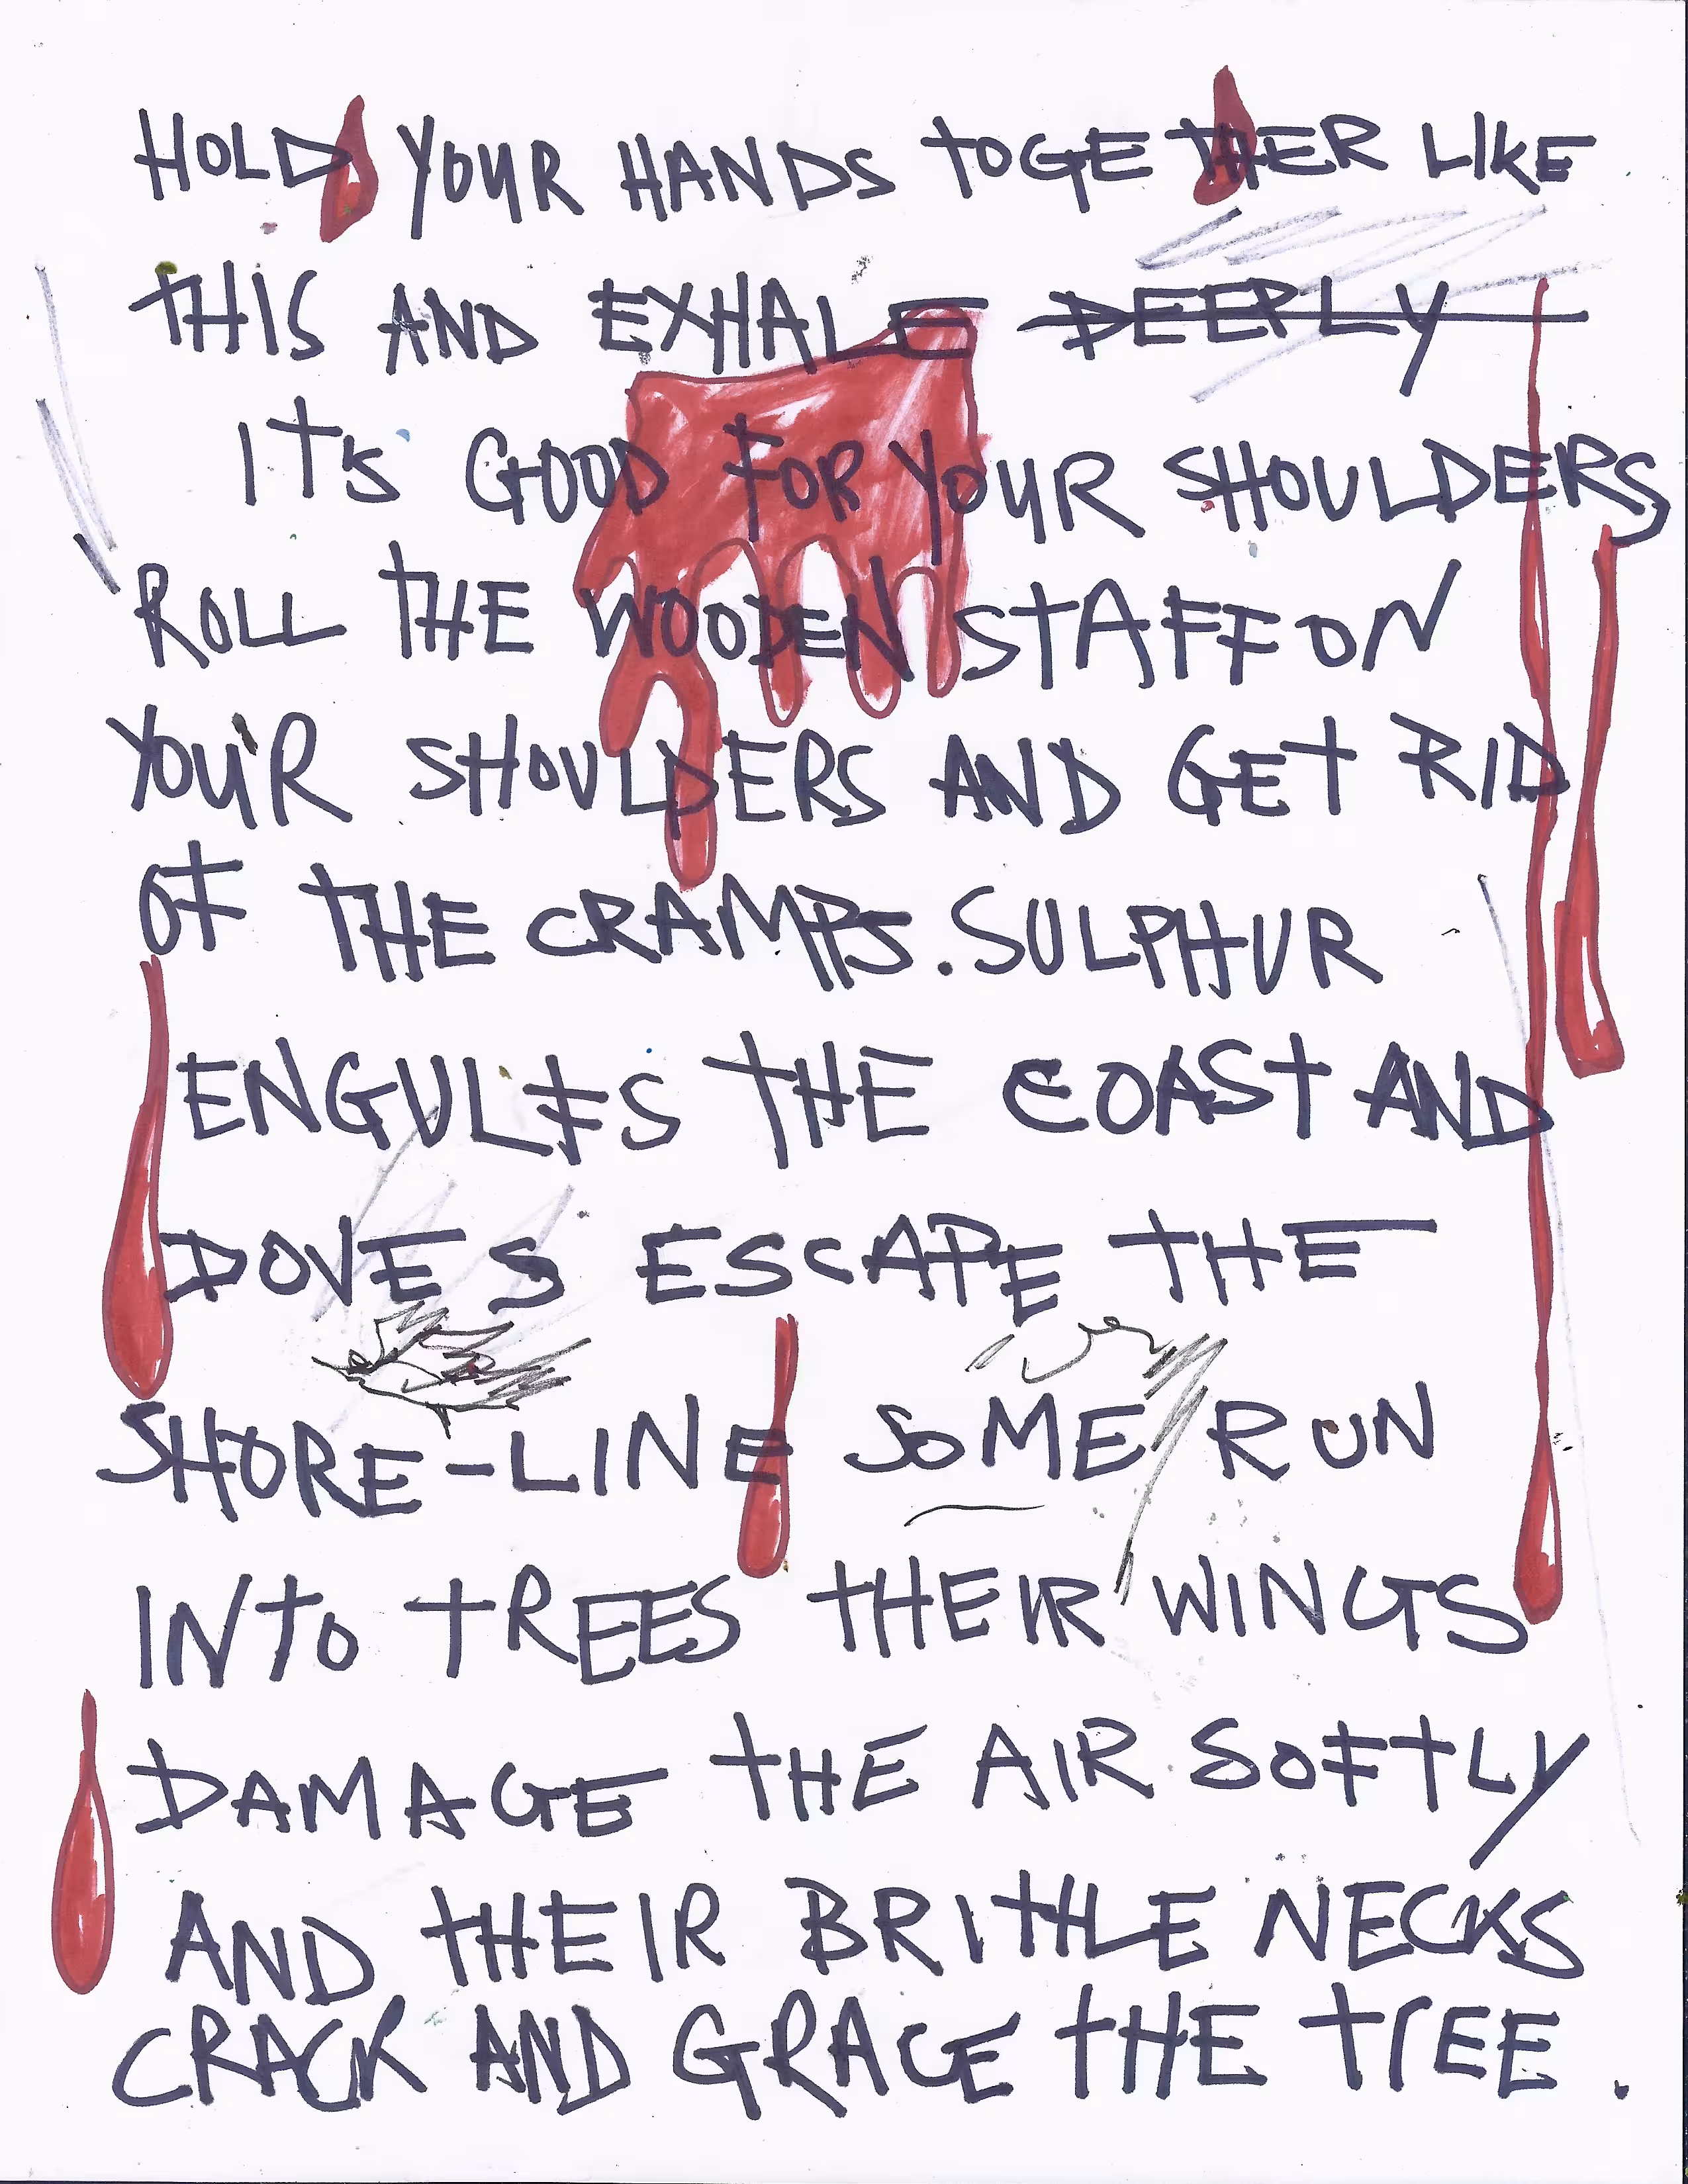 HOLD YOUR HANDS TOGETHER LIKE
THIS AND EXHALE DEEPLY
IT'S GOOD FOR YOUR SHOULDERS
ROLL THE WOODEN STAFF ON
YOU'R SHOULDERS AND GET RID
OF THE CRAMPS. SULPHUR
ENGULFS THE COAST AND
DOVES ESCAPE THE
SHORE-LINE SOME RUN
INTO TREES THEIR WINGS
DAMAGE THE AIR SOFTLY
AND THEIR BRITTLE NECKS
CRACK AND GRACE THE TREE.